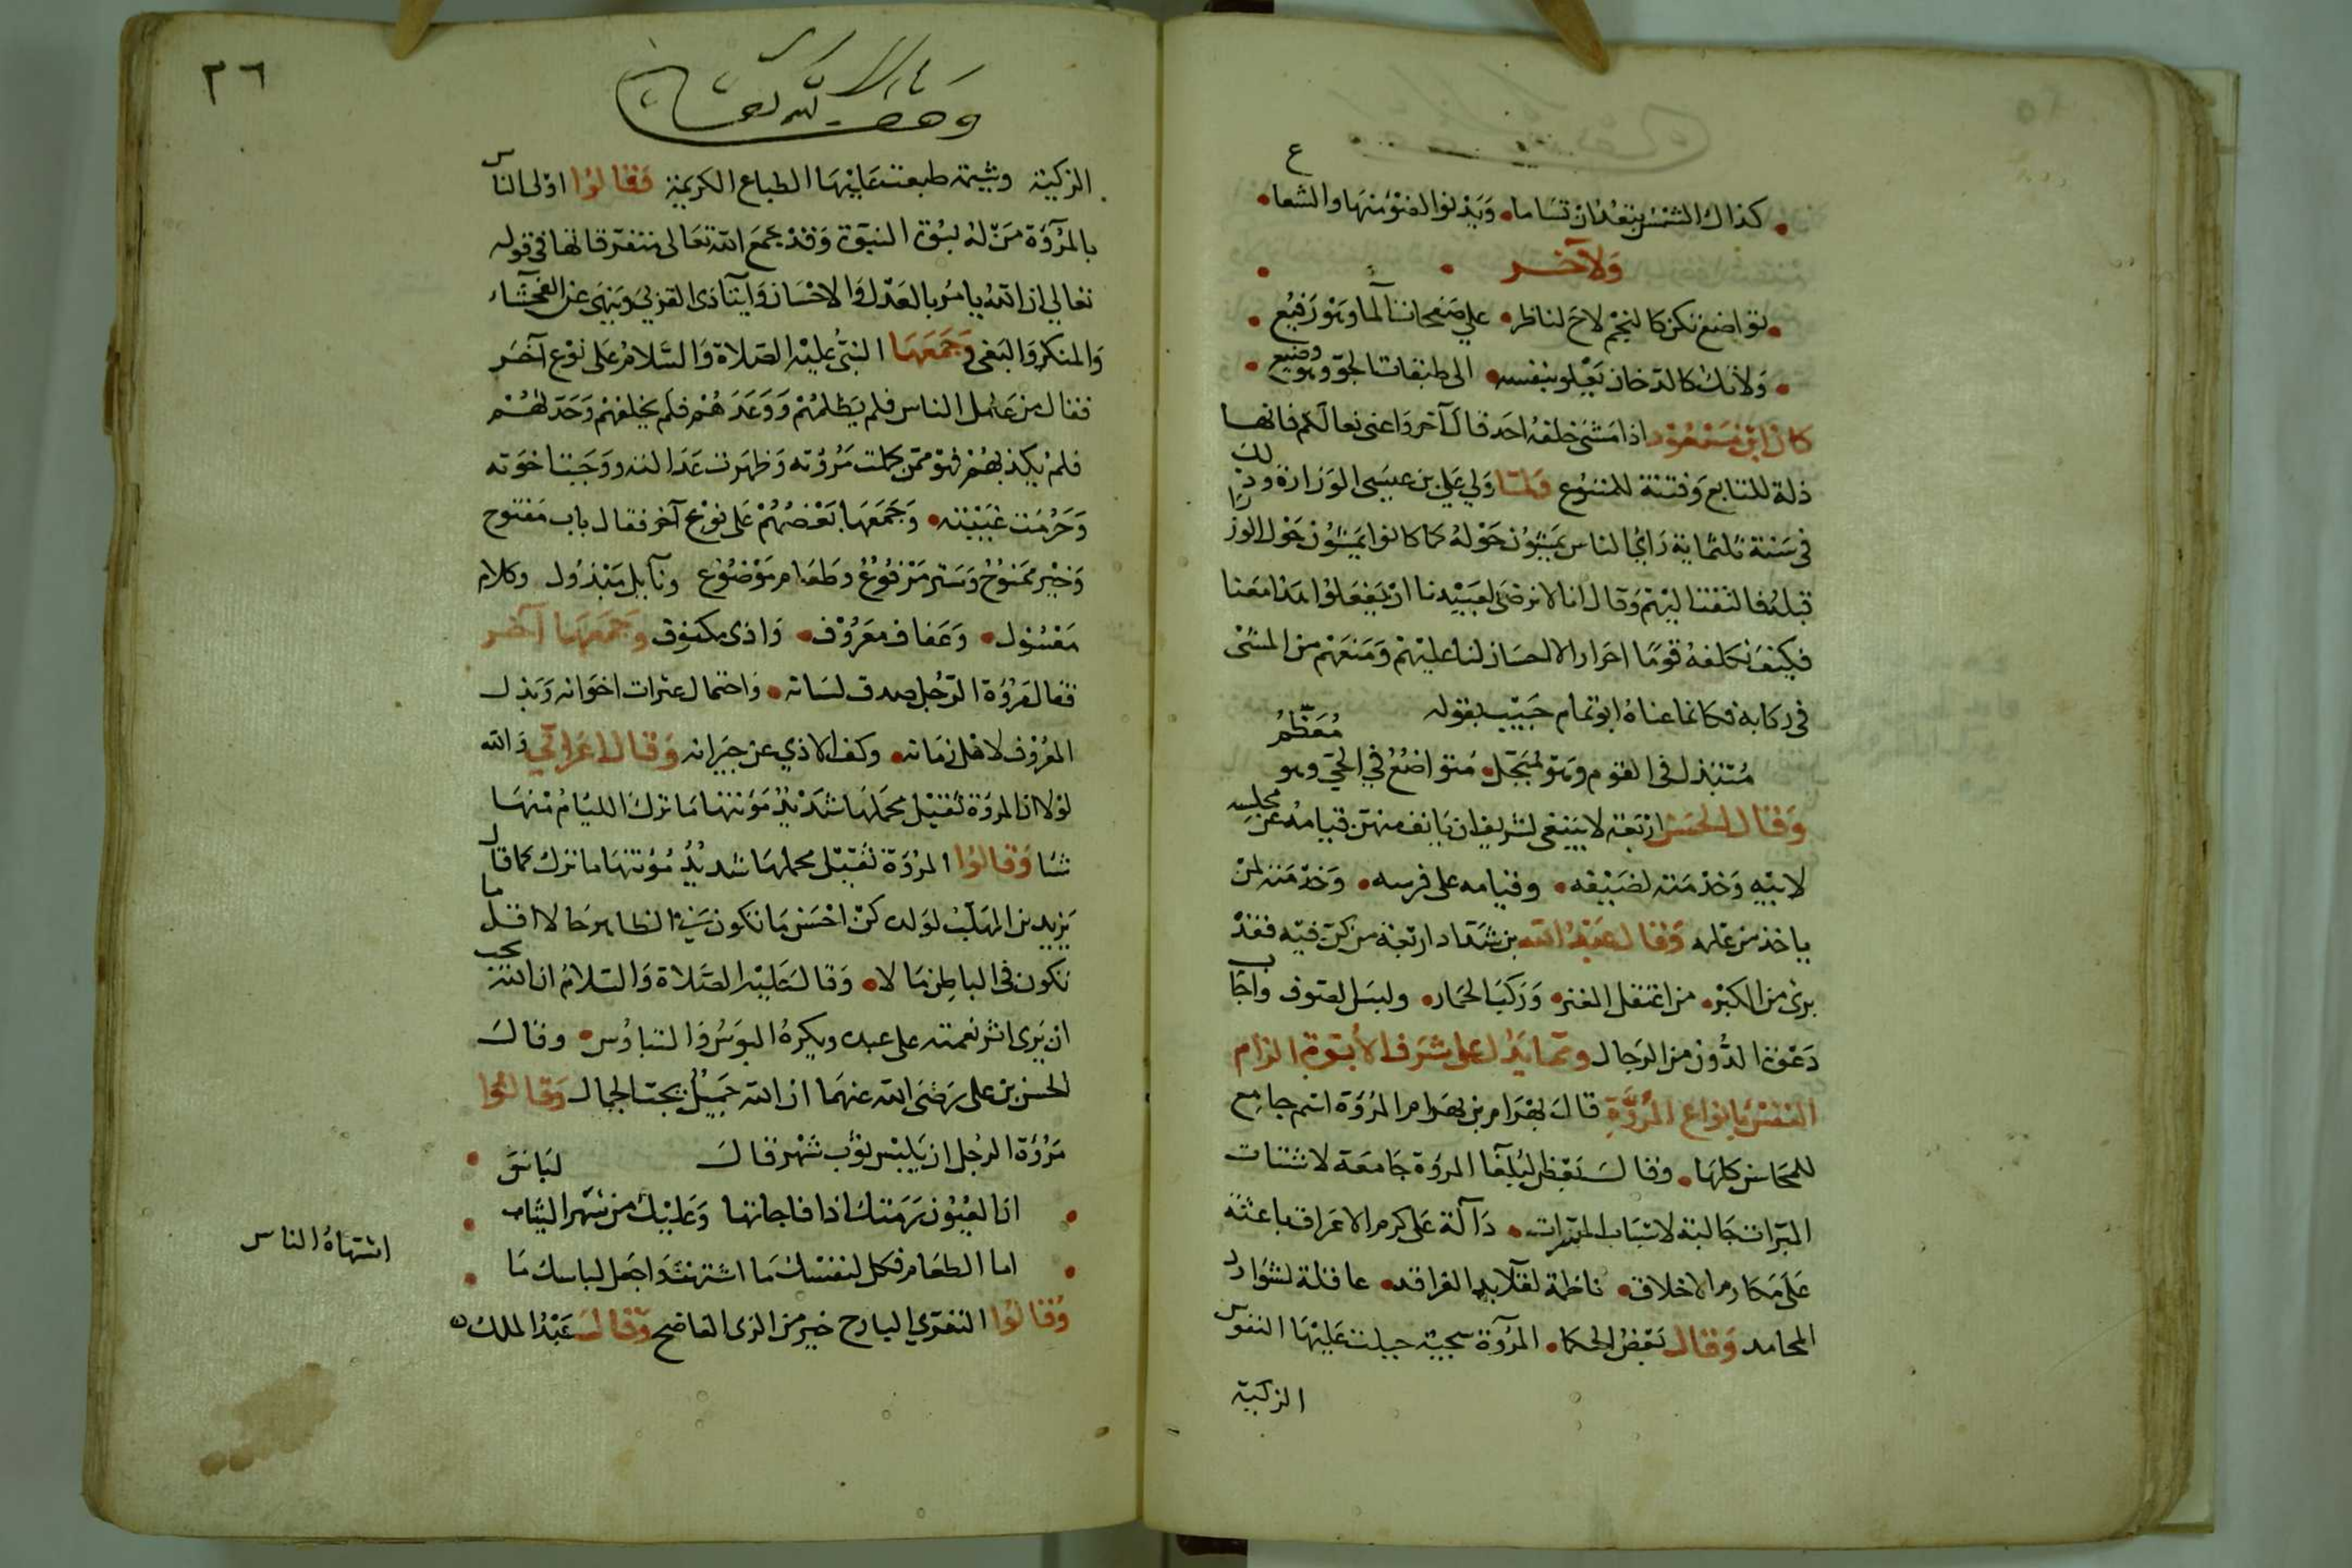 كذاك الشمس تبعد ان تساما • ويدنوا الضوء منها والشعاع
ولآخر
تواضع تكن كالنجم لاح لناظر • على صفحات الما وهو رفيع
ولا تك كالدخان يعلو بنفسه • الى طبقات الجو وهو وضيع
كان ابن مسعود اذا مشى خلفه احد قال آخروا عنى نعالكم فانها
ذلة للتابع وفتنة للمتبوع ولما ولي علي بن عيسى الوزارة وذلك
في سنة ثلثماية رأى الناس يمشون حوله كما كانوا يمشون حول الوزرا
قبله فالتفت اليهم وقال انا لا نرضى لعبيدنا ان يفعلوا هذا معنا
فكيف نكلفه قوما احرارا لا احسان لنا عليهم ومنعهم من المشى
في ركابه فكانما عناه ابو تمام حبيب بقوله
متبذل في القوم وهو مبجل • متواضع في الحي وهو معظم
وقال الحسن اربعة لا ينبغى لشريف ان يانف منهن قيامه عن مجلسه
لابيه وخدمته لضيفه • وقيامه على فرسه • وخدمته لمن
ياخذ من علمه وقال عبد الله بن شداد اربعة من كن فيه فقد
برئ من الكبر • من اعتقل العنز • وركب الحمار • ولبس الصوف واجاب
دعوة الدون من الرجال ومما يدل على شرف الأبوة الزام
النفس بانواع المروءة قال بهرام بن بهرام المروة اسم جامع
للمحاسن كلها • وقال بعض البلغا المروة جامعة لاشتات
المبرات جالبة لاسباب المسرات • دآلة على كرم الاعراق باعثة
على مكارم الاخلاق • ناظمة لقلايد الفراقد • عاقلة لشوارد
المحامد وقال بعض الحكما • المروة سجية جبلت عليها النفوس
الزكية
٣٦
وقف لله تعالى
الزكية وشيمة طبعت عليها الطباع الكريمة فقالوا اولى الناس
بالمروة من له بنوة النبوة وقد جمع الله تعالى متفرقاتها في قوله
تعالي ان الله يامر بالعدل والاحسان وايتآ ذى القربى وينهى عن الفحشآء
والمنكر والبغى وجمعها النبى عليه الصلاة والسلام على نوع آخر
فقال من عامل الناس فلم يظلمهم ووعدهم فلم يخلفهم وحدثهم
فلم يكذبهم فهو ممن كملت مروته وظهرت عدالته ووجبت اخوته
وحرمت غيبته • وجمعها بعضهم على نوع آخر فقال باب مفتوح
وخير ممنوح وستر مرفوع وطعام موضوع ونآيل مبذول وكلام
معسول • وعفاف معروف • واذى مكفوف وجمعها آخر
فقال مروة الرجل صدق لسانه • واحتمال عثرات اخوانه وبذل
المعروف لاهل زمانه • وكف الاذي عن جيرانه وقال اعرابي والله
لولا ان المروة ثقيل محملها شديد مؤنتها ما ترك الليام منها
شيا وقالوا المروة ثقيل محملها شديد مؤنتها ما ترك كما قال
يزيد بن المهلب لولده كن احسن ما تكون في الظاهر حالا اقل ما
تكون في الباطن مالا • وقال عليه الصلاة والسلام ان الله يحب
ان يرى اثر نعمته على عبده ويكره البوس والتباؤس • وقال
الحسن بن على رضى الله عنهما ان الله جميل يحب الجمال وقالوا
مروة الرجل ان يلبس ثوب شهر قال
ان العيون رمتك اذ فاجاتها وعليك من شهر الثياب لباس
اما الطعام فكل لنفسك ما اشتهت واجعل لباسك ما
اشتهاه الناس
وقالوا التعري البارح خير من الزى الفاضح وقال عبد الملك